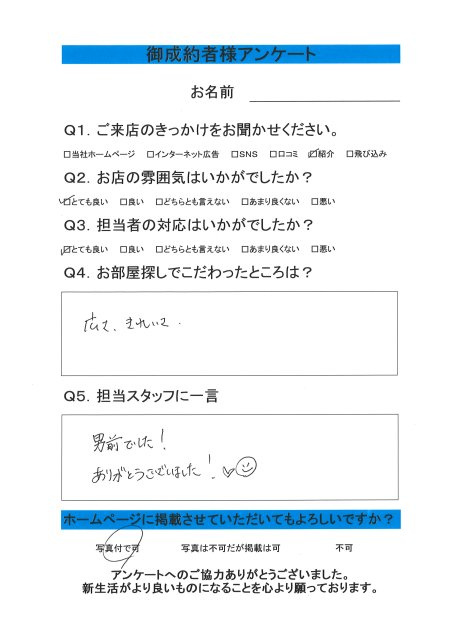 御成約者様アンケート
お名前
Q1. ご来店のきっかけをお聞かせください。
□当社ホームページ □インターネット広告 □SNS □口コミ ☑紹介 □飛び込み
Q2. お店の雰囲気はいかがでしたか？
☑とても良い □良い □どちらとも言えない □あまり良くない □悪い
Q3. 担当者の対応はいかがでしたか？
☑とても良い □良い □どちらとも言えない □あまり良くない □悪い
Q4. お部屋探しでこだわったところは？
広さ、きれいさ.
Q5. 担当スタッフに一言
男前でした！
ありがとうございました！
ホームページに掲載させていただいてもよろしいですか？
写真付で可 写真は不可だが掲載は可 不可
アンケートへのご協力ありがとうございました。
新生活がより良いものになることを心より願っております。